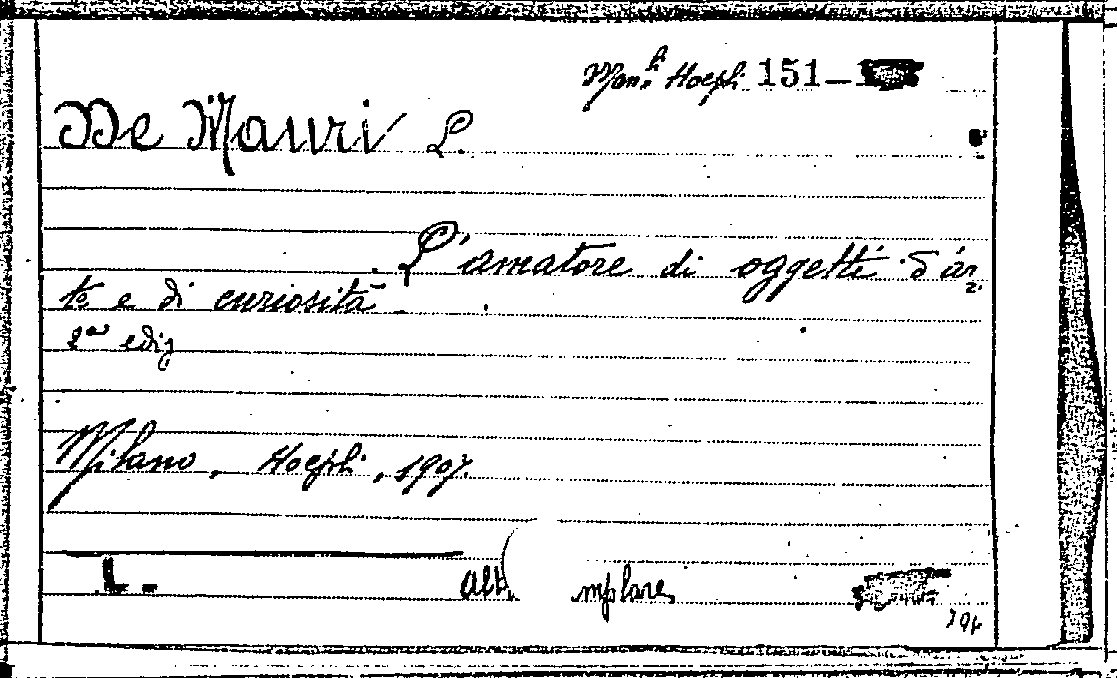 Man.li Hoepli 151-
De Mauri L.
L'amatore di oggetti d'ar
te e di curiosità.
2a ediz
Milano, Hoepli, 1907.
L - alt mplare